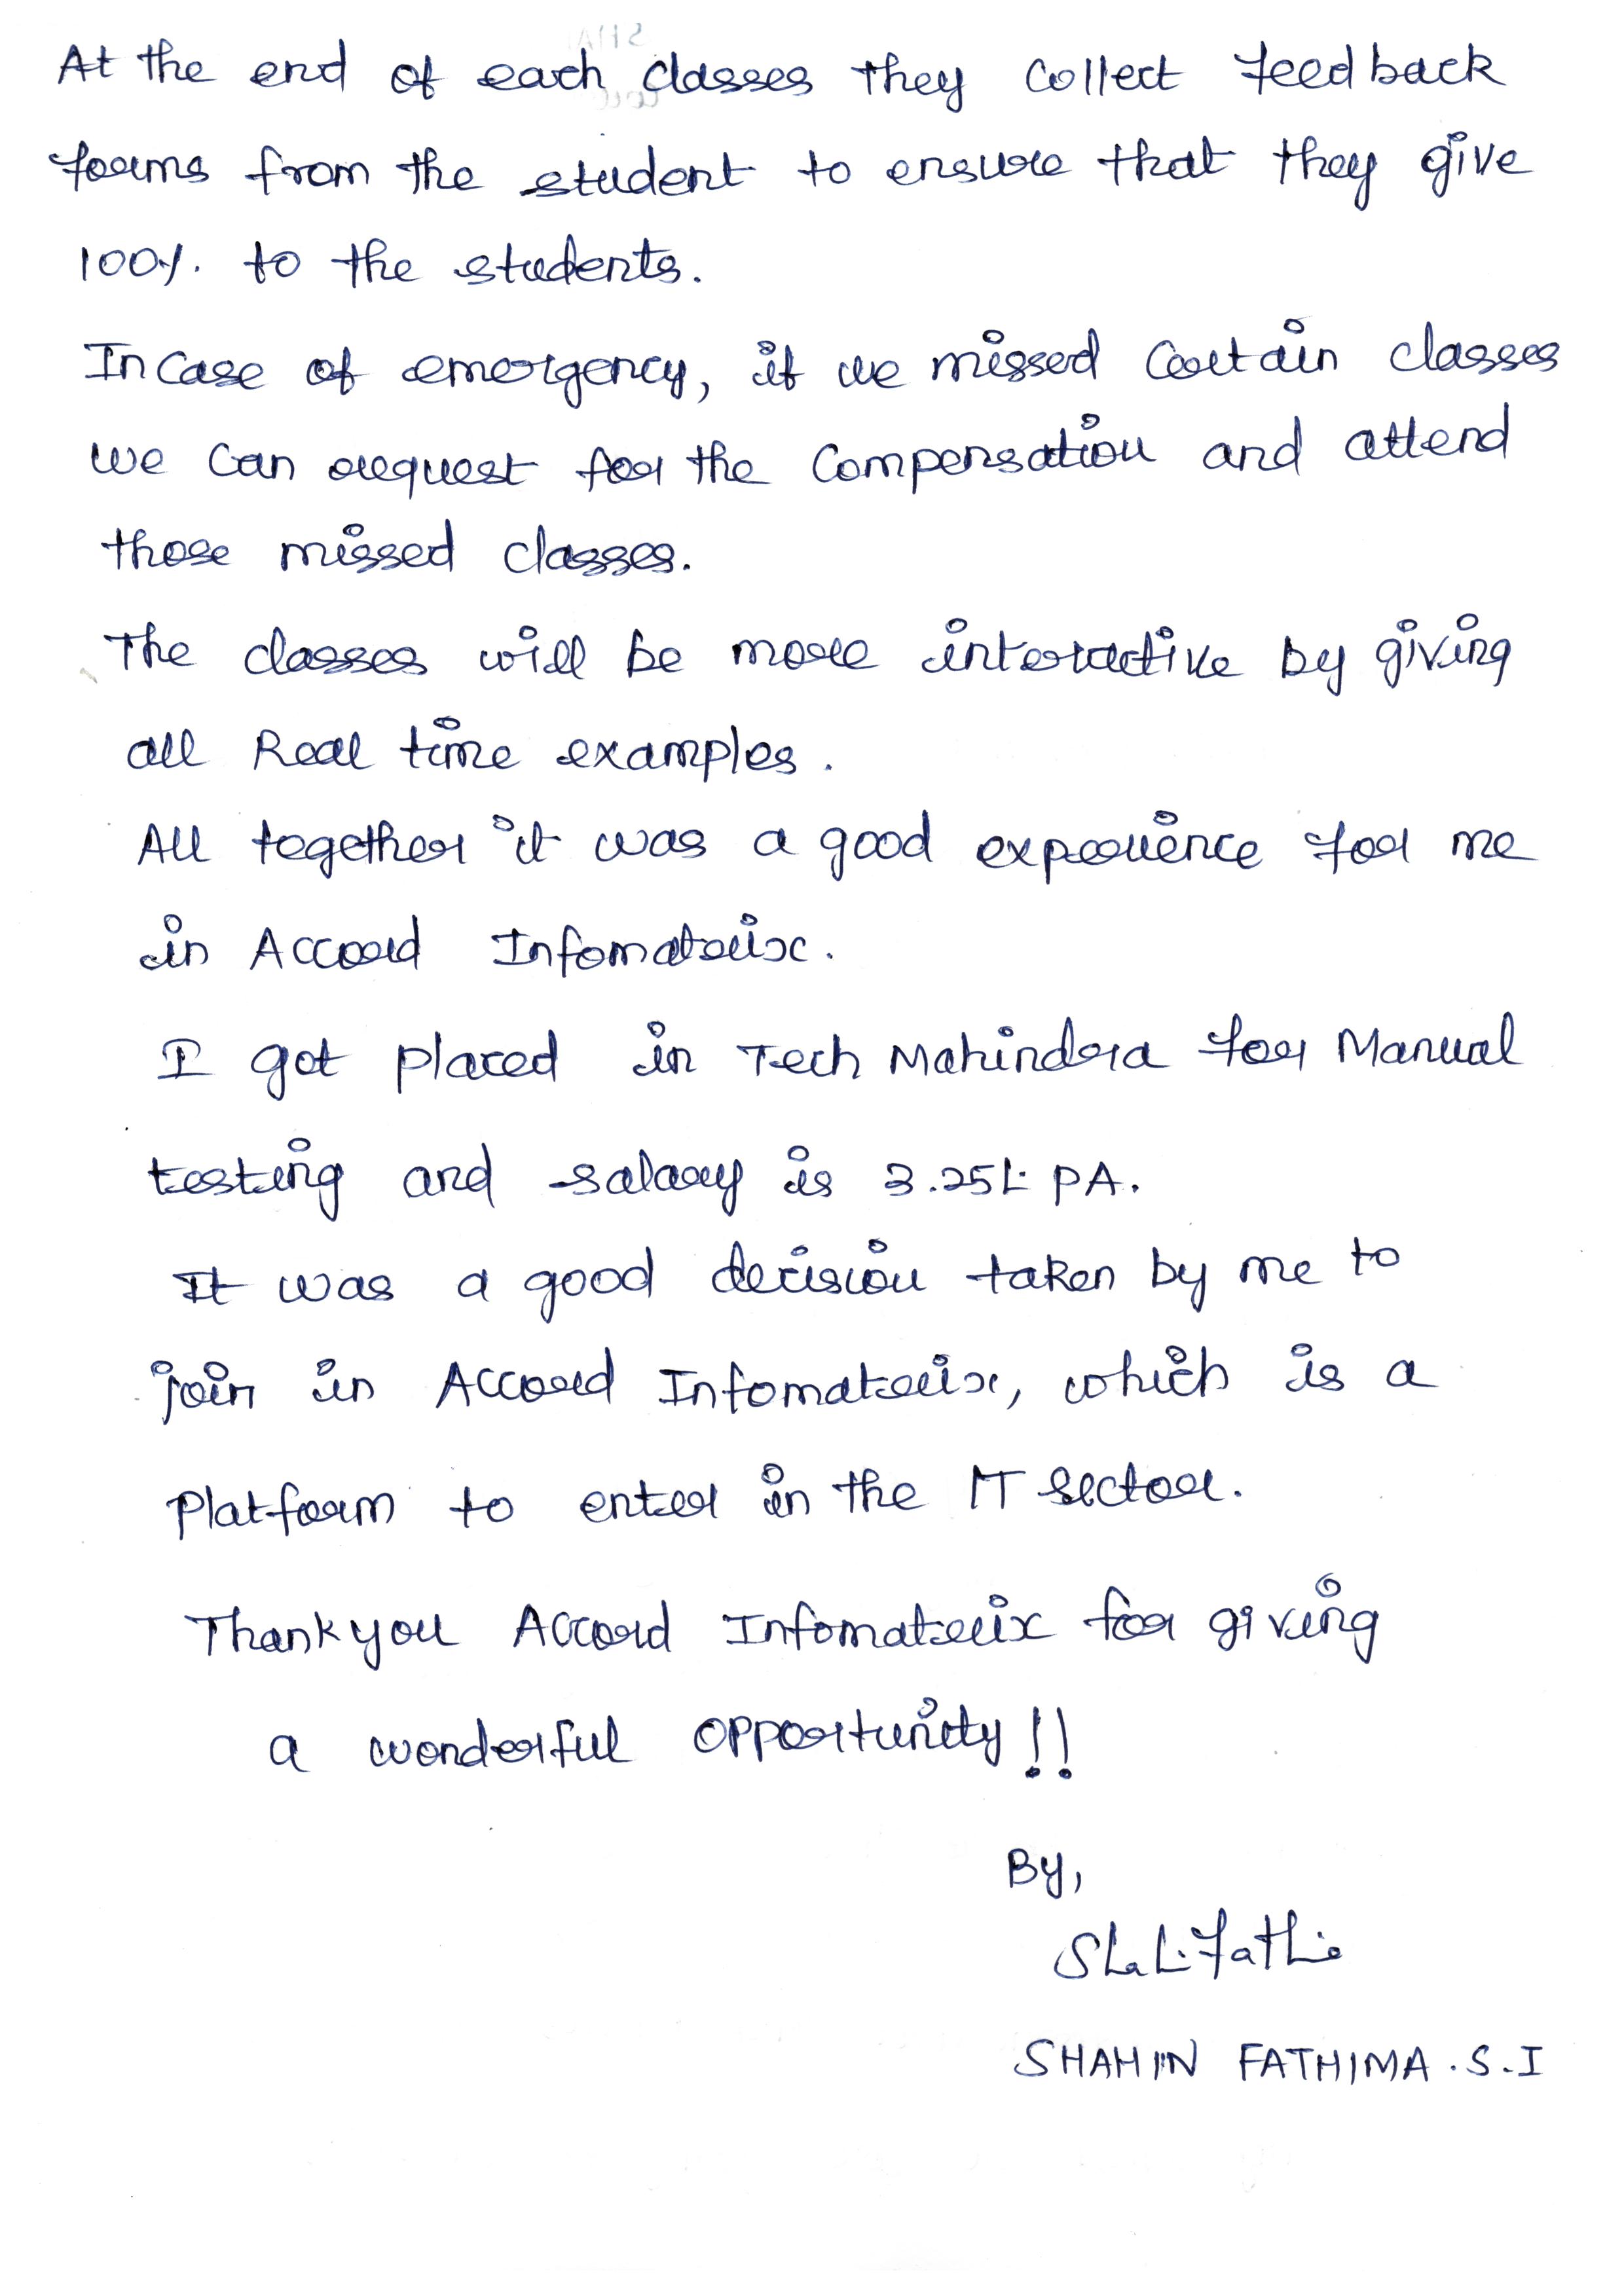 At the end of each classes they collect feedback
forms from the student to ensure that they give
100%. to the students.
In case of emergency, if we missed certain classes
we can request for the compensation and attend
those missed classes.
The classes will be more interactive by giving
all Real time examples.
All together it was a good experience for me
in Accord Infomatrix.
I got placed in Tech Mahindra for Manual
testing and salary is 3.25L PA.
It was a good decision taken by me to
join in Accord Infomatrix, which is a
Platform to enter in the IT sector.
Thank you Accord Infomatrix for giving
a wonderful opportunity!!
By,
SHAHIN FATHIMA.S.I